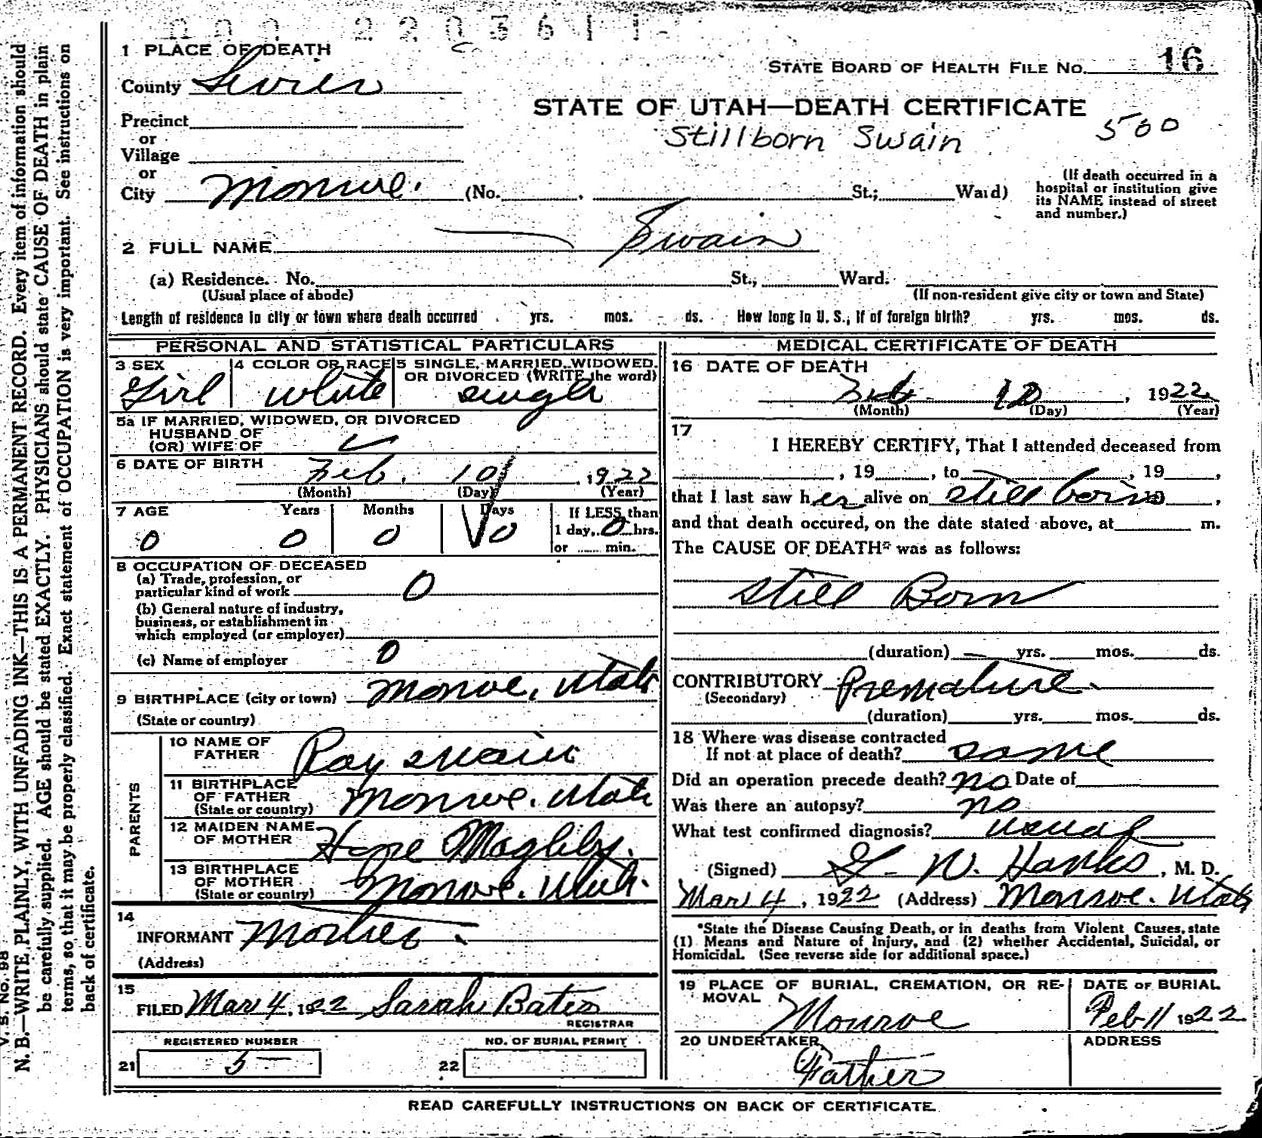 000 2203611
1 PLACE OF DEATH
STATE BOARD OF HEALTH FILE NO. 16
County Sevier
STATE OF UTAH—DEATH CERTIFICATE
Precinct
Stillborn Swain 500
or
Village
or
City Monroe. (No. St.; Ward)
(If death occurred in a hospital or institution give its NAME instead of street and number.)
2 FULL NAME Swain
(a) Residence. No. St., Ward.
(Usual place of abode) (If non-resident give city or town and State)
Length of residence in city or town where death occurred yrs. mos. ds. How long in U. S., if of foreign birth? yrs. mos. ds.
PERSONAL AND STATISTICAL PARTICULARS
3 SEX Girl
4 COLOR OR RACE white
5 SINGLE, MARRIED, WIDOWED, OR DIVORCED (WRITE the word) single
5a IF MARRIED, WIDOWED, OR DIVORCED
HUSBAND OF
(OR) WIFE OF
6 DATE OF BIRTH Feb. 10 1922
(Month) (Day) (Year)
7 AGE Years Months Days If LESS than
0 0 0 0 1 day, 0 hrs.
or ...... min.
8 OCCUPATION OF DECEASED
(a) Trade, profession, or
particular kind of work 0
(b) General nature of industry,
business, or establishment in
which employed (or employer)
(c) Name of employer 0
9 BIRTHPLACE (city or town) Monroe, Utah
(State or country)
PARENTS
10 NAME OF FATHER Ray Swain
11 BIRTHPLACE OF FATHER Monroe. Utah
(State or country)
12 MAIDEN NAME OF MOTHER Hope Magleby.
13 BIRTHPLACE OF MOTHER Monroe. Utah.
(State or country)
14
INFORMANT Mother
(Address)
15
FILED Mar 4, 1922 Sarah Bates
REGISTRAR
REGISTERED NUMBER NO. OF BURIAL PERMIT
21 5 22
MEDICAL CERTIFICATE OF DEATH
16 DATE OF DEATH
Feb 10, 1922
(Month) (Day) (Year)
17
I HEREBY CERTIFY, That I attended deceased from
, 19 , to , 19 ,
that I last saw her alive on still born ,
and that death occured, on the date stated above, at m.
The CAUSE OF DEATH* was as follows:
Still Born
(duration) yrs. mos. ds.
CONTRIBUTORY Premature.
(Secondary)
(duration) yrs. mos. ds.
18 Where was disease contracted
If not at place of death? same
Did an operation precede death? no Date of
Was there an autopsy? no
What test confirmed diagnosis? usual
(Signed) G. W. Hanks, M. D.
Mar 4, 1922 (Address) Monroe. Utah
*State the Disease Causing Death, or in deaths from Violent Causes, state
(1) Means and Nature of Injury, and (2) whether Accidental, Suicidal, or
Homicidal. (See reverse side for additional space.)
19 PLACE OF BURIAL, CREMATION, OR RE-
MOVAL Monroe
DATE OF BURIAL
Feb 11 1922
20 UNDERTAKER Father
ADDRESS
READ CAREFULLY INSTRUCTIONS ON BACK OF CERTIFICATE.
V. S. No. 98
N. B.—WRITE PLAINLY, WITH UNFADING INK—THIS IS A PERMANENT RECORD. Every item of information should
be carefully supplied. AGE should be stated EXACTLY. PHYSICIANS should state CAUSE OF DEATH in plain
terms, so that it may be properly classified. Exact statement of OCCUPATION is very important. See instructions on
back of certificate.